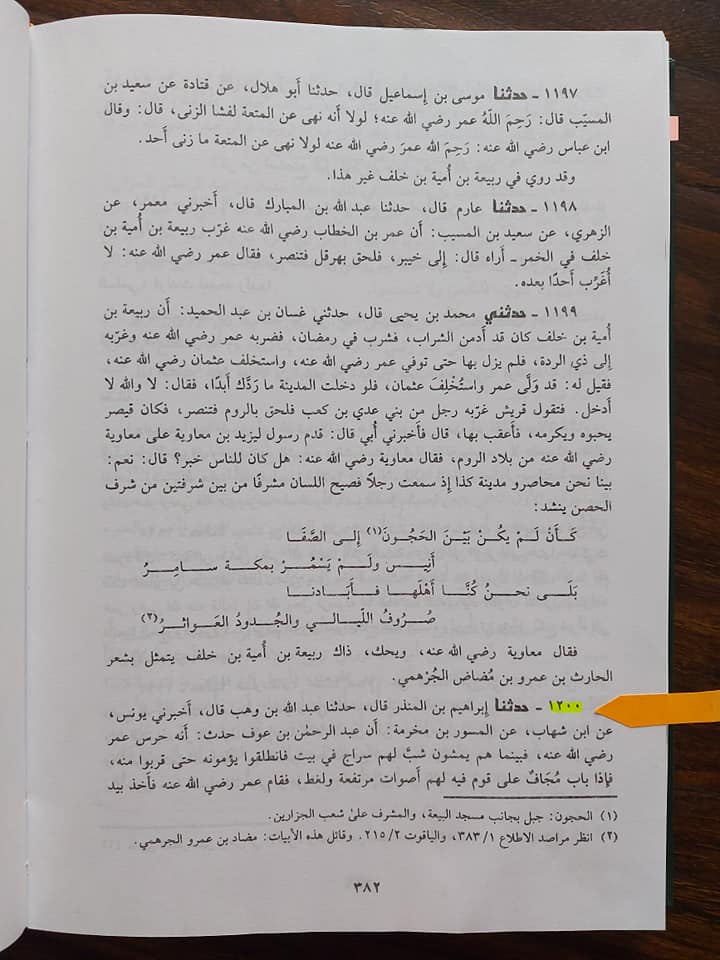 ١١٩٧ - حدثنا موسى بن إسماعيل قال، حدثنا أبو هلال، عن قتادة عن سعيد بن
المسيّب قال: رَحِمَ اللّهُ عمر رضي الله عنه؛ لولا أنه نهى عن المتعة لفشا الزنى، قال: وقال
ابن عباس رضي الله عنه: رَحِمَ الله عمرَ رضي الله عنه لولا نهى عن المتعة ما زنى أحد.
وقد روي في ربيعة بن أمية بن خلف غير هذا.
١١٩٨ - حدثنا عارم قال، حدثنا عبد الله بن المبارك قال، أخبرني معمر، عن
الزهري، عن سعيد بن المسيب: أن عمر بن الخطاب رضي الله عنه غرّب ربيعة بن أُمية بن
خلف في الخمر - أراه قال: إلى خيبر، فلحق بهرقل فتنصر، فقال عمر رضي الله عنه: لا
أُغَرِّب أحدًا بعده.
١١٩٩ - حدثني محمد بن يحيى قال، حدثني غسان بن عبد الحميد: أن ربيعة بن
أُمية بن خلف كان قد أدمن الشراب، فشرب في رمضان، فضربه عمر رضي الله عنه وغرّبه
إلى ذي الردة، فلم يزل بها حتى توفي عمر رضي الله عنه، واستخلف عثمان رضي الله عنه،
فقيل له: قد وَلَّى عمر واستُخْلِفَ عثمان، فلو دخلت المدينة ما رَدَّك أبدًا، فقال: لا والله لا
أدخل. فتقول قريش غرّبه رجل من بني عدي بن كعب فلحق بالروم فتنصر، فكان قيصر
يحبوه ويكرمه، فأعقب بها، قال فأخبرني أُبي قال: قدم رسول ليزيد بن معاوية على معاوية
رضي الله عنه من بلاد الروم، فقال معاوية رضي الله عنه: هل كان للناس خبر؟ قال: نعم:
بينا نحن محاصرو مدينة كذا إذ سمعت رجلاً فصيح اللسان مشرفًا من بين شرفتين من شرف
الحصن ينشد:
كَأَنْ لَمْ يكُنْ بَيْنَ الحَجُونَ(١) إلى الصَّفَا
أَنِيس ولَمْ يَسْمُرْ بمكة سامِرُ
بَلَى نحنُ كُنَّا أهْلَها فأَبَادنا
صُرُوفُ اللّيالي والجُدودُ العَواثرُ(٢)
فقال معاوية رضي الله عنه، ويحك، ذاك ربيعة بن أُمية بن خلف يتمثل بشعر
الحارث بن عمرو بن مُضاض الجُرْهمي.
١٢٠٠ - حدثنا إبراهيم بن المنذر قال، حدثنا عبد الله بن وهب قال، أخبرني يونس،
عن ابن شهاب، عن المسور بن مخرمة: أن عبد الرحمٰن بن عوف حدث: أنه حرس عمر
رضي الله عنه، فبينما هم يمشون شبَّ لهم سراج في بيت فانطلقوا يؤمونه حتى قربوا منه،
فإذا باب مُجَافٌ على قوم فيه لهم أصوات مرتفعة ولغط، فقام عمر رضي الله عنه فأخذ بيد
(١) الحجون: جبل بجانب مسجد البيعة، والمشرف على شعب الجزارين.
(٢) انظر مراصد الاطلاع ٣٨٣/١، والياقوت ٢١٥/٢. وقائل هذه الأبيات: مضاد بن عمرو الجرهمي.
٣٨٢